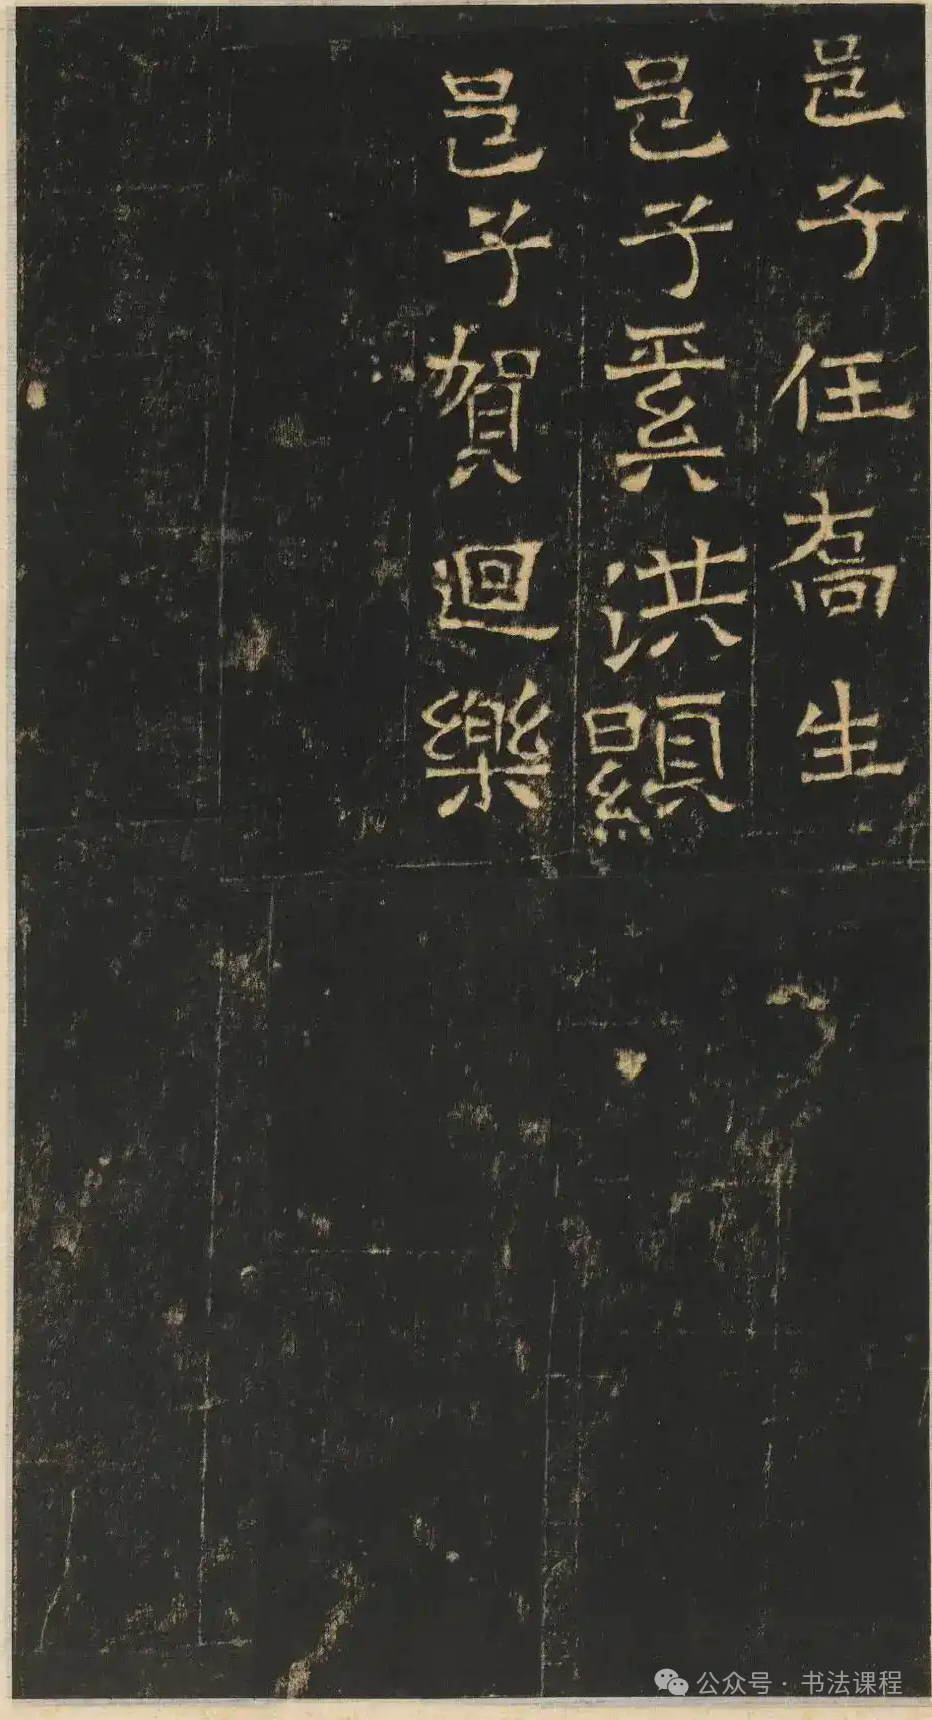 邑子任喬生
邑子洪顯
邑子賀迴樂
公众号·书法课程